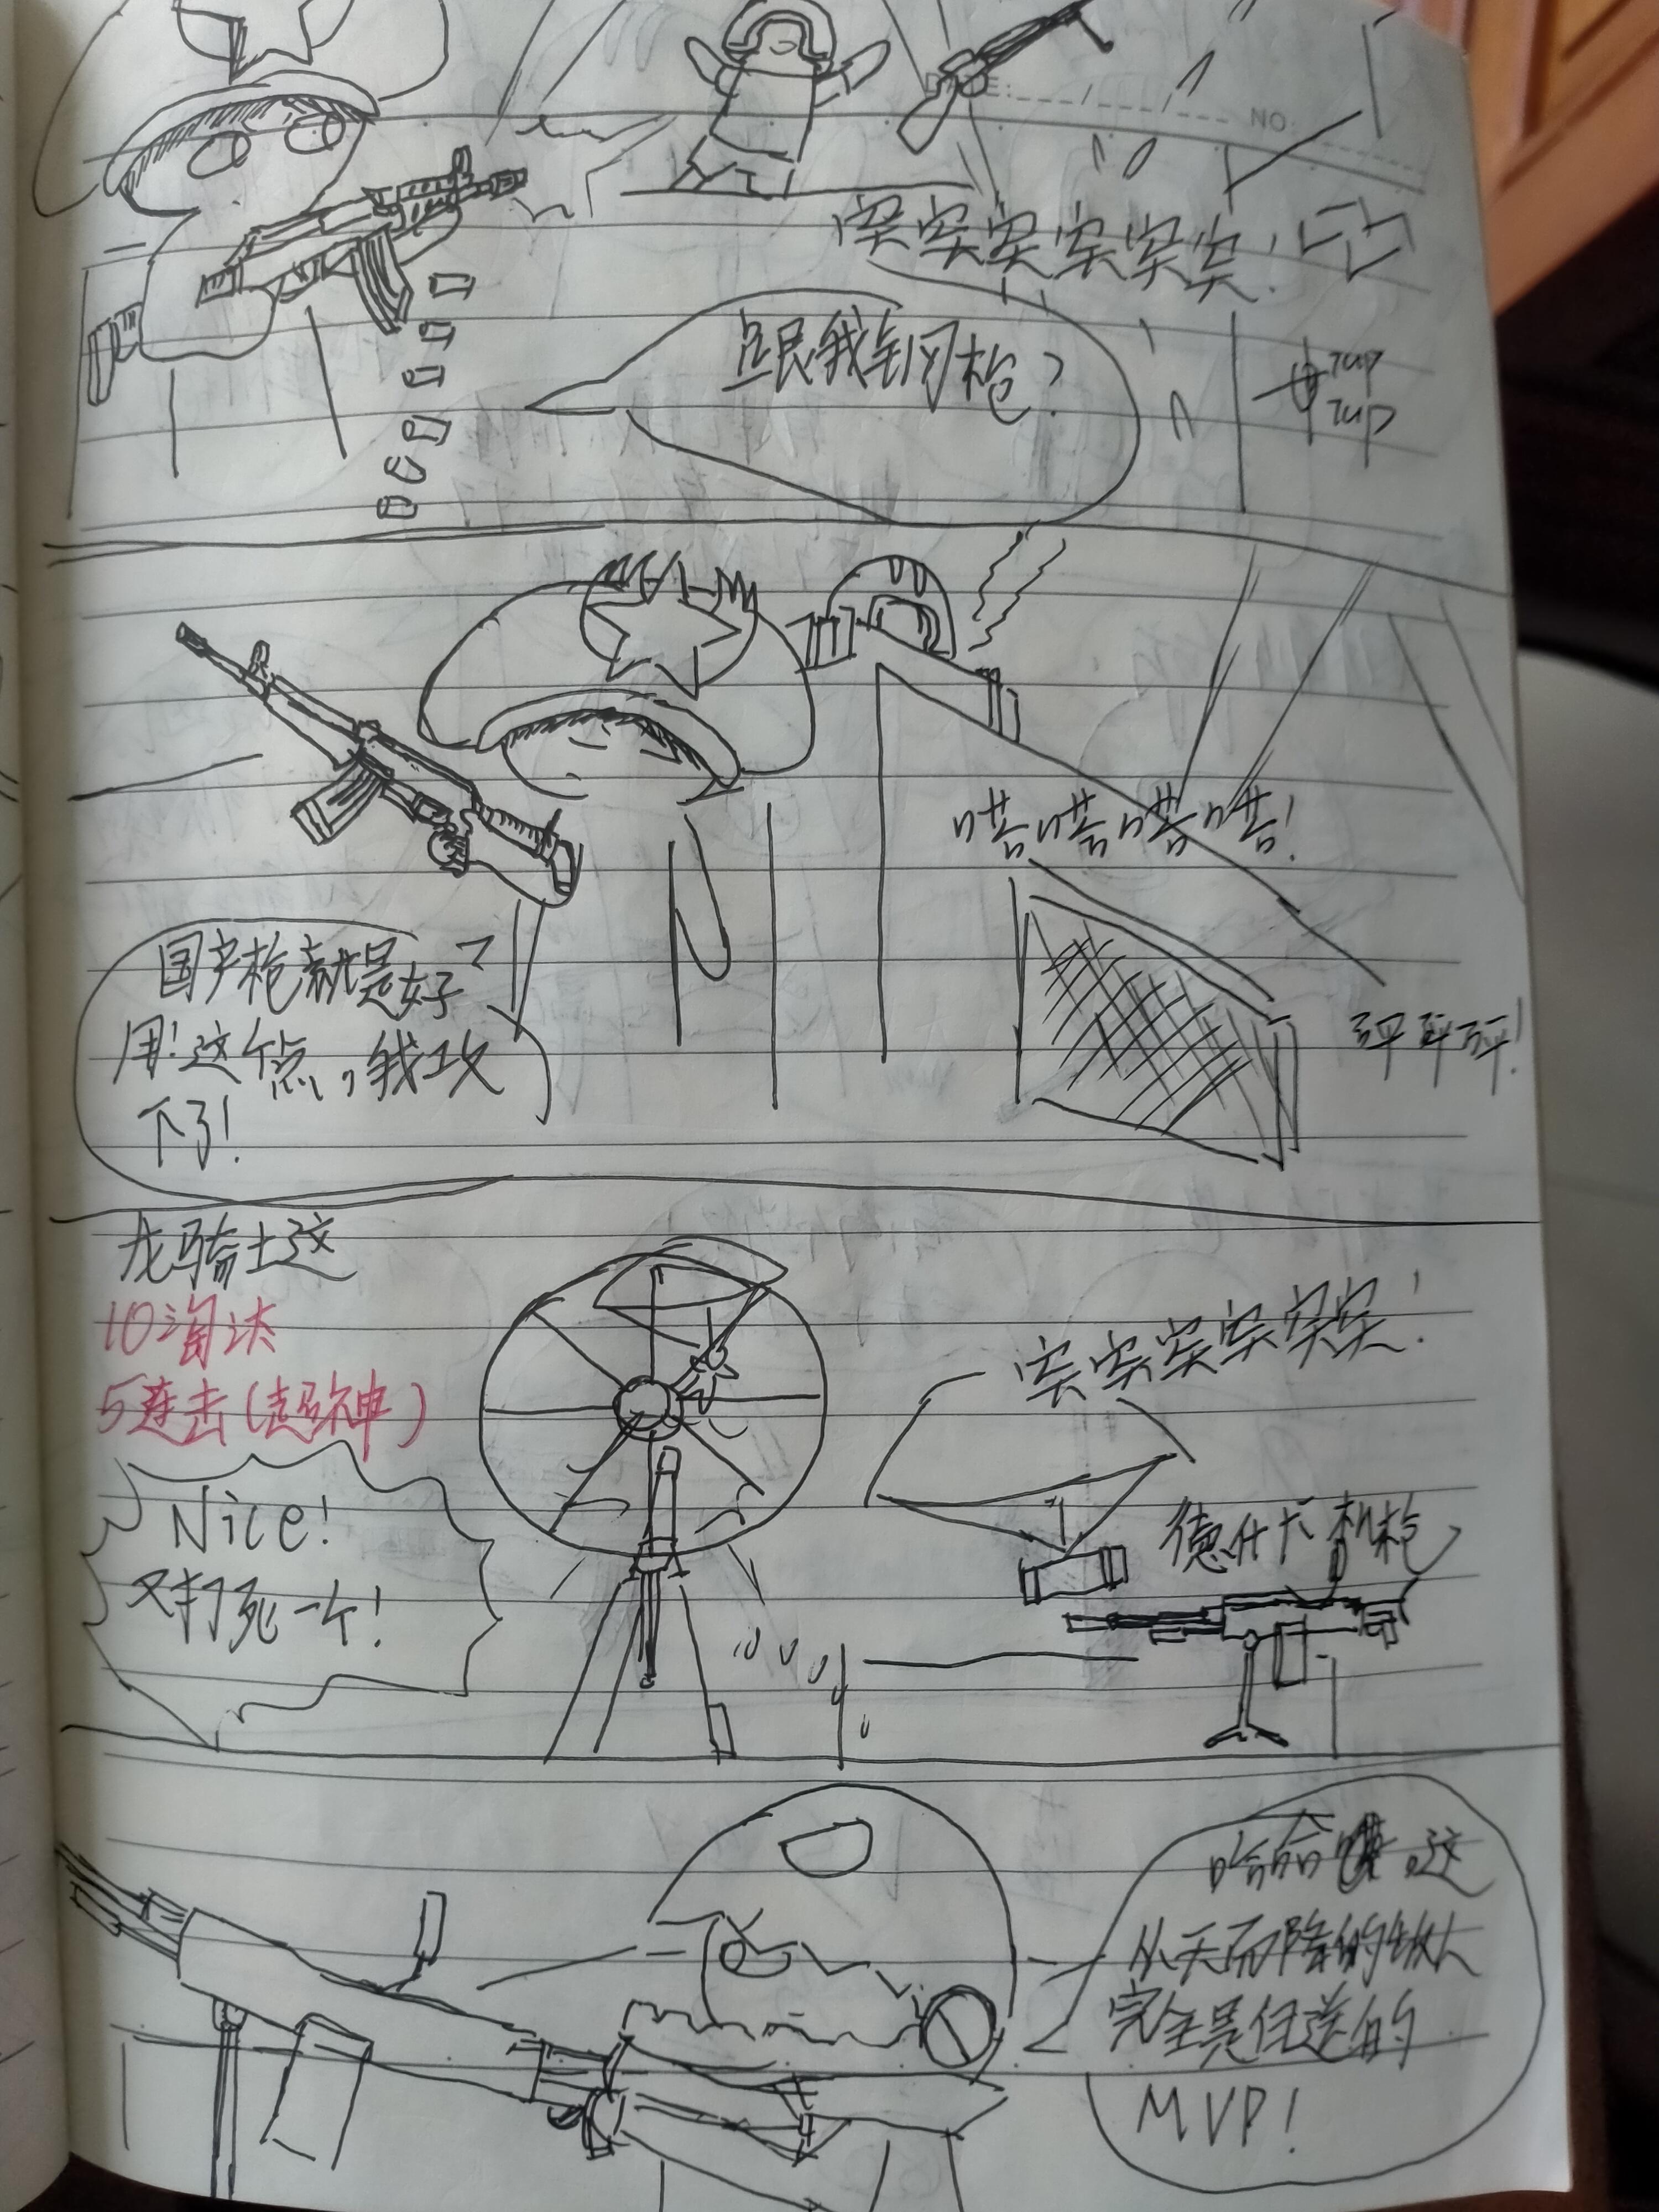 DATE: / / NO:
突突突突突突！
且跟我钢枪？
TUP
TUP
哒哒哒哒！
国产枪就是好
用！这个点，我攻
下了！
砰砰砰！
龙骑士这
10淘汰
5连击（超神）
突突突突突突！
Nice！
又打死一个！
德什卡机枪
哈哈 这
从天而降的
完全是任送的
MVP！